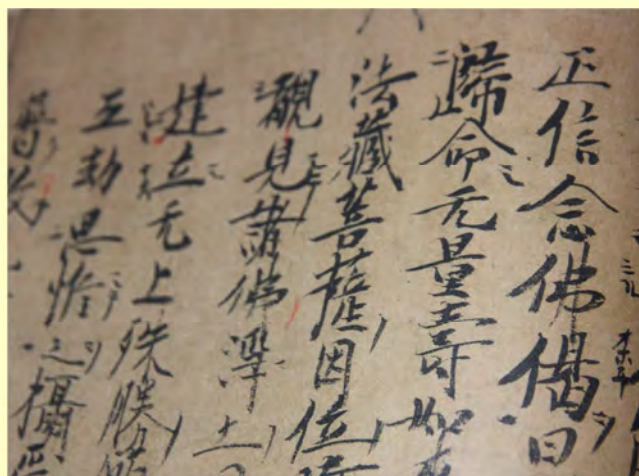 正信念佛偈曰
歸命无量壽如
法藏菩薩因位
覩見諸佛淨土
建立无上殊勝
五劫思惟之攝
普放